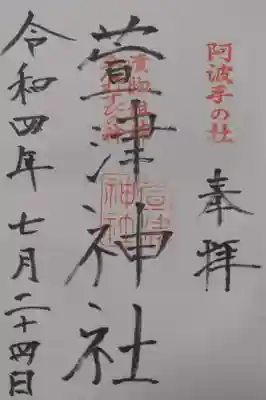 阿波手の社
奉拝
漬物祖神
萱津神社
令和四年七月二十四日